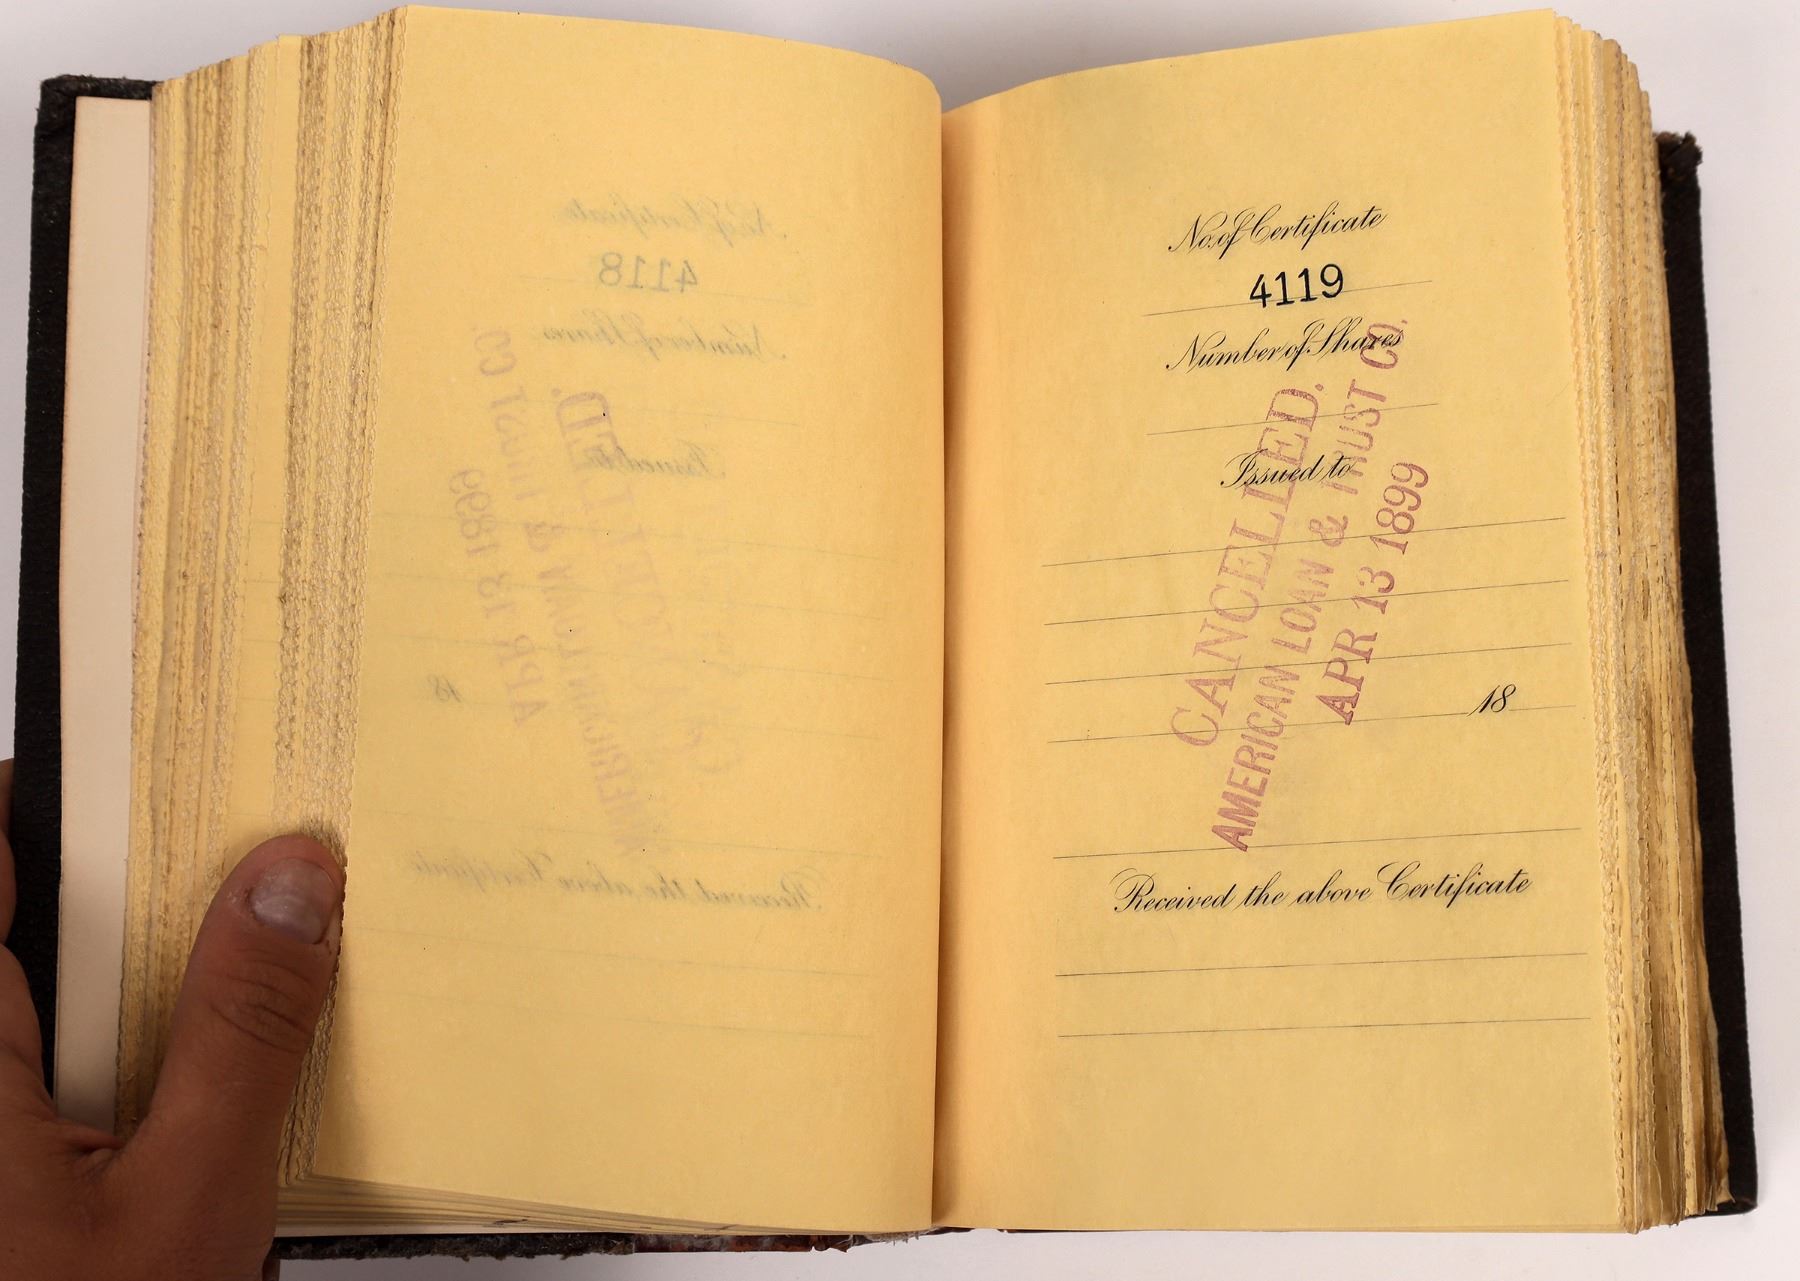 No. of Certificate
4118
Number of Shares
Issued to
18
CANCELLED.
AMERICAN LOAN & TRUST CO.
APR 13 1899
Received the above Certificate
No. of Certificate
4119
Number of Shares
Issued to
18
CANCELLED.
AMERICAN LOAN & TRUST CO.
APR 13 1899
Received the above Certificate